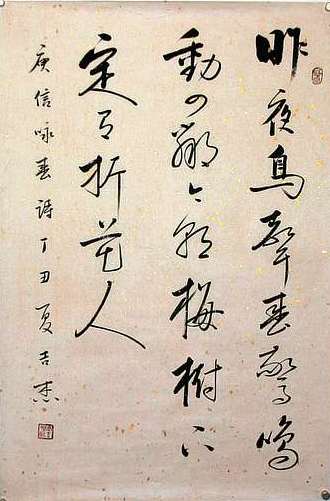 昨夜鳥聲春驚鳴
動四鄰今朝梅樹下
定有折花人
庾信咏春詩丁丑夏吉杰